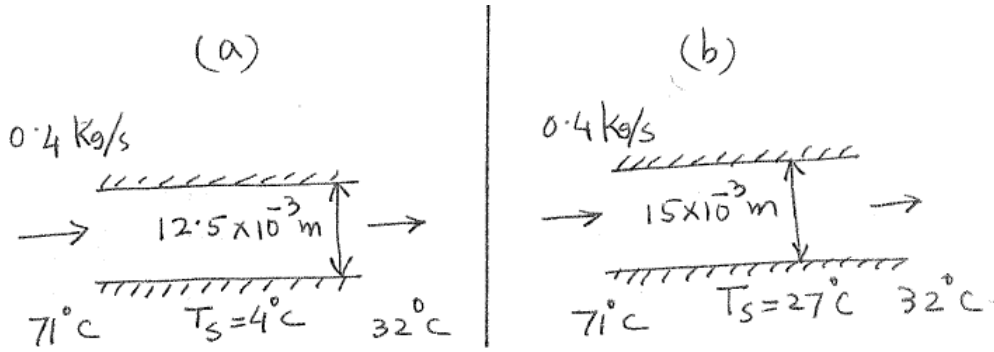 (a)
0.4 Kg/s
12.5×10⁻³ m
71°C
T_S=4°C
32°C
(b)
0.4 kg/s
15×10⁻³ m
71°C
T_S=27°C
32°C